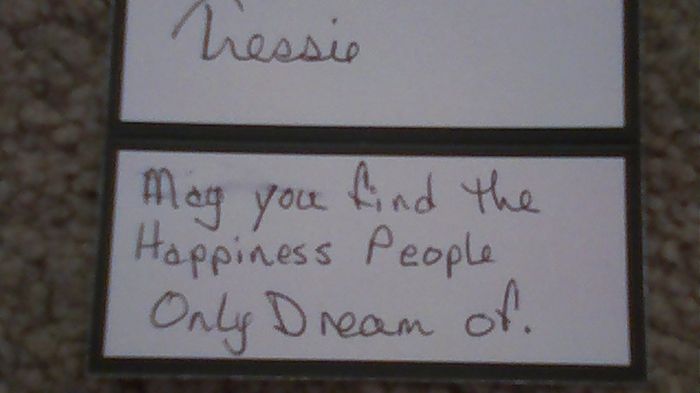 Tressie
May you find the
Happiness People
Only Dream of.